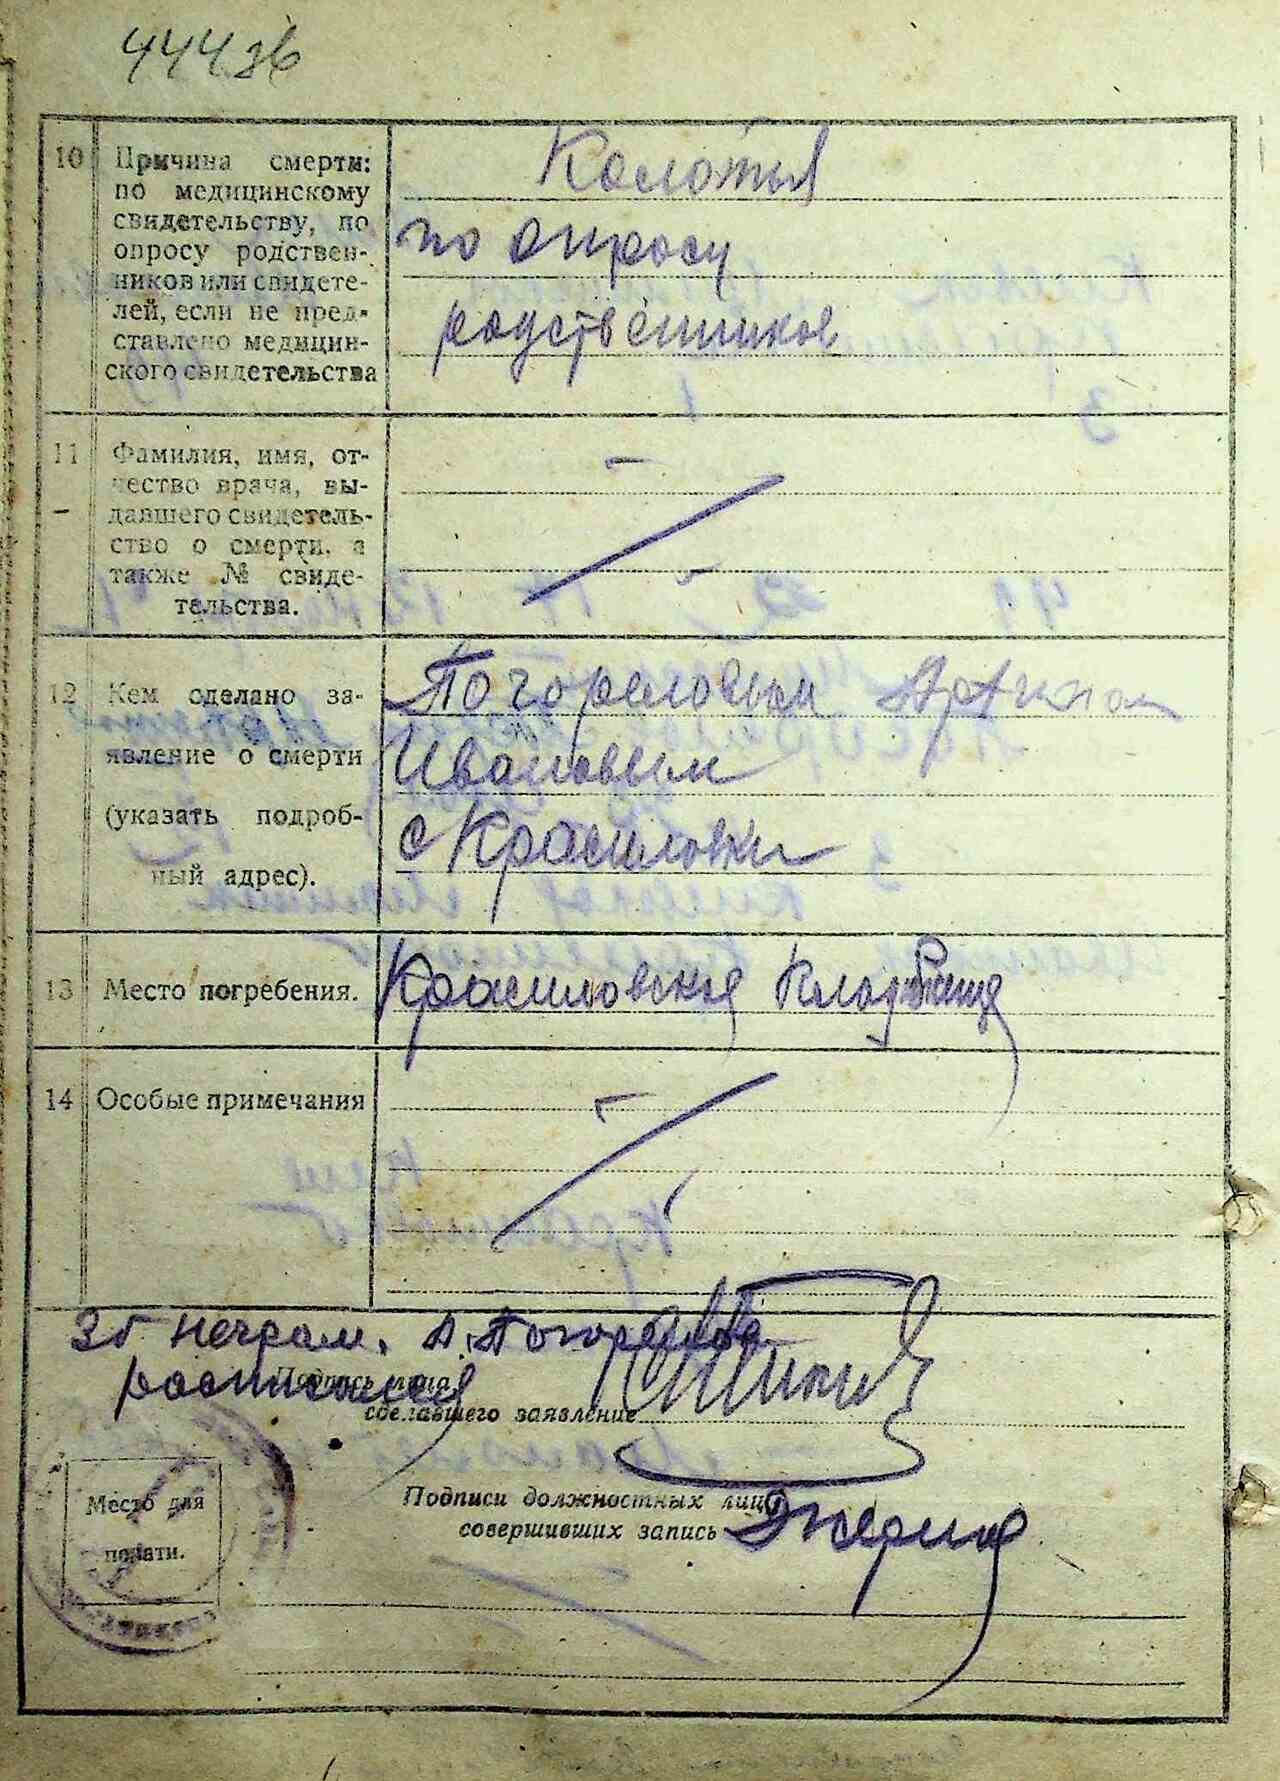 44436
10 Причина смерти:
по медицинскому
свидетельству, по
опросу родствен-
ников или свидете-
лей, если не пред-
ставлено медицин-
ского свидетельства
Колотья
по опросу
родственников
11 Фамилия, имя, от-
чество врача, вы-
давшего свидетель-
ство о смерти, а
также № свиде-
тельства.
12 Кем сделано за-
явление о смерти
(указать подроб-
ный адрес).
Погореловым
Ивановым
с Красиловки
13 Место погребения.
Красиловская Кладбище
14 Особые примечания
Зб неграм. А. Погорелова
расписался
Подпись лица
сделавшего заявление
Место для
печати.
Подписи должностных лиц,
совершивших запись